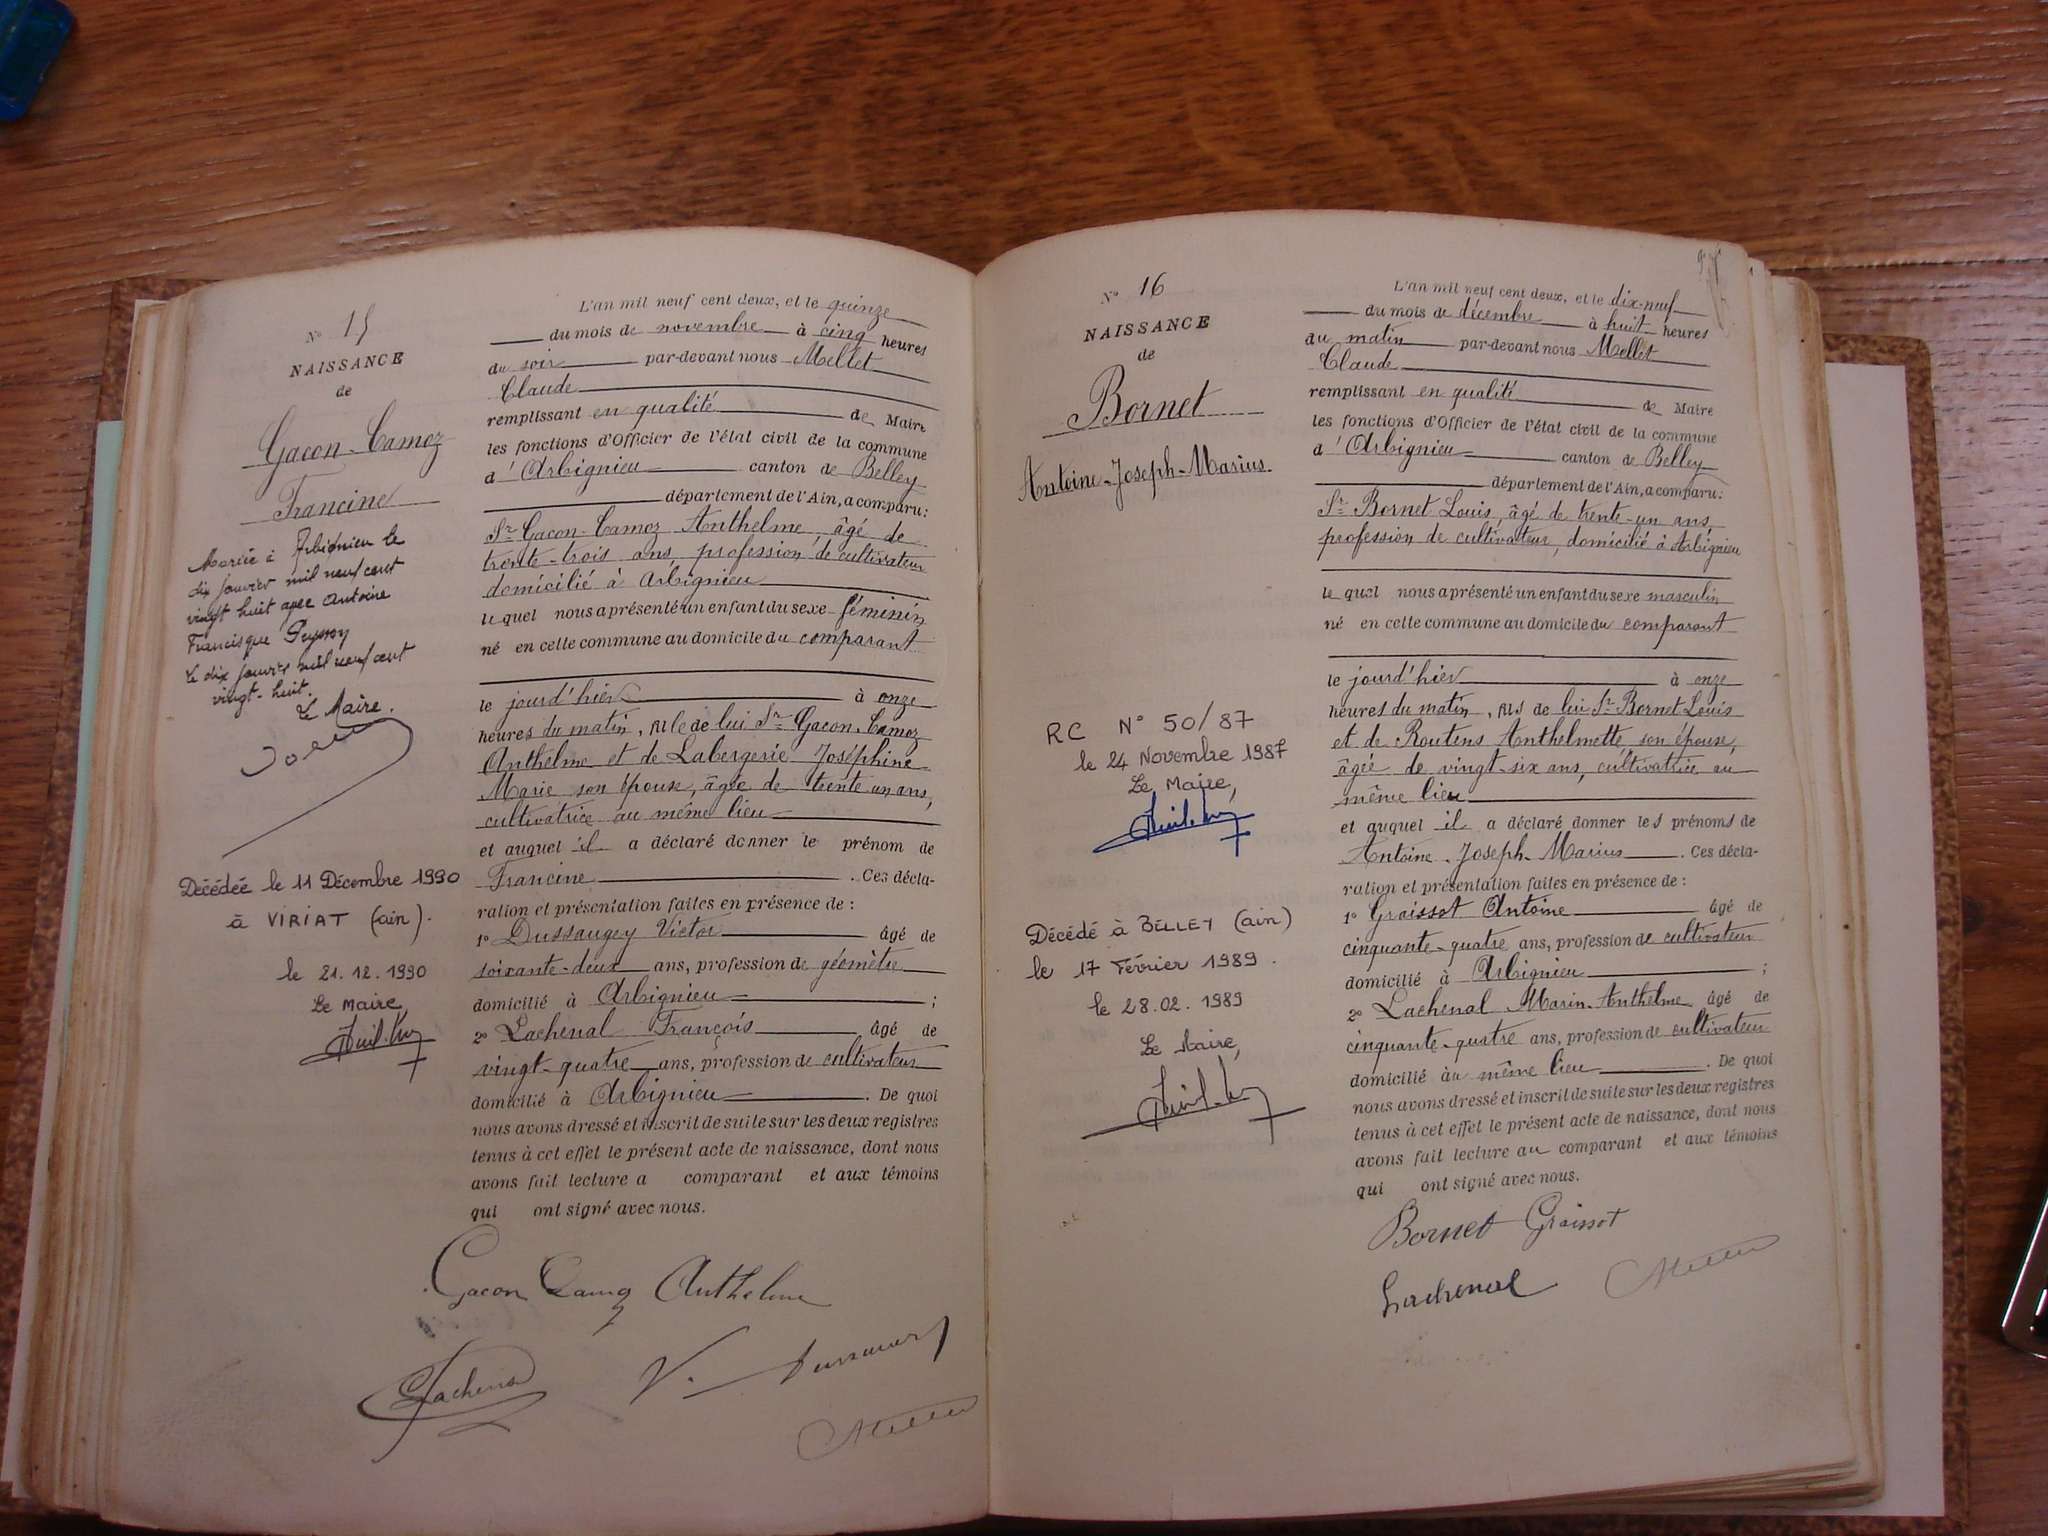 N° 15
NAISSANCE
de
Gacon-Camoz
Francine
Mariée à Arbignieu le
dix janvier mil neuf cent
vingt huit avec Antoine
Francisque Peysson
Le dix janvier mil neuf cent
vingt-huit.
Le Maire.
Décédée le 11 Décembre 1990
à VIRIAT (ain).
le 21.12.1990
Le Maire
L'an mil neuf cent deux, et le quinze
du mois de novembre à cinq heures
du soir par-devant nous Mellet
Claude
remplissant en qualité de Maire
les fonctions d'Officier de l'état civil de la commune
d'Arbignieu canton de Belley
département de l'Ain, a comparu:
Sr Gacon-Camoz Anthelme, âgé de
trente-trois ans, profession de cultivateur
domicilié à Arbignieu
lequel nous a présenté un enfant du sexe féminin
né en cette commune au domicile du comparant
le jourd'hier à onze
heures du matin, fille de lui Sr Gacon-Camoz
Anthelme et de Labergerie Joséphine
Marie son épouse, âgée de trente un ans,
cultivatrice au même lieu
et auquel il a déclaré donner le prénom de
Francine. Ces décla-
ration et présentation faites en présence de :
1° Dussaugey Victor âgé de
soixante-deux ans, profession de géomètre
domicilié à Arbignieu ;
2° Lachenal François âgé de
vingt-quatre ans, profession de cultivateur
domicilié à Arbignieu. De quoi
nous avons dressé et inscrit de suite sur les deux registres
tenus à cet effet le présent acte de naissance, dont nous
avons fait lecture a comparant et aux témoins
qui ont signé avec nous.
Gacon Camoz Anthelme
Lachenal V. Dussaugey
Mellet
N° 16
NAISSANCE
de
Bornet
Antoine-Joseph-Marius
RC N° 50/87
le 24 Novembre 1987
Le Maire,
Décédé à BELLEY (ain)
le 17 Février 1989.
le 28.02.1989
Le Maire,
L'an mil neuf cent deux, et le dix-neuf
du mois de décembre à huit heures
du matin par-devant nous Mellet
Claude
remplissant en qualité de Maire
les fonctions d'Officier de l'état civil de la commune
d'Arbignieu canton de Belley
département de l'Ain, a comparu:
Sr Bornet Louis, âgé de trente-un ans,
profession de cultivateur, domicilié à Arbignieu
lequel nous a présenté un enfant du sexe masculin
né en cette commune au domicile du comparant
le jourd'hier à onze
heures du matin, fils de lui Sr Bornet Louis
et de Routens Anthelmette son épouse,
âgée de vingt-six ans, cultivatrice au
même lieu
et auquel il a déclaré donner les prénoms de
Antoine-Joseph-Marius. Ces décla-
ration et présentation faites en présence de :
1° Graissot Antoine âgé de
cinquante-quatre ans, profession de cultivateur
domicilié à Arbignieu ;
2° Lachenal Marin-Anthelme âgé de
cinquante-quatre ans, profession de cultivateur
domicilié au même lieu. De quoi
nous avons dressé et inscrit de suite sur les deux registres
tenus à cet effet le présent acte de naissance, dont nous
avons fait lecture au comparant et aux témoins
qui ont signé avec nous.
Bornet Graissot
Lachenal Mellet